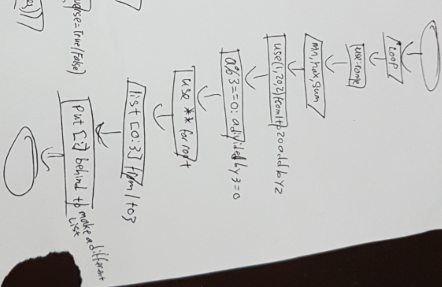 Loop
min, max, sum
use(1,20,2) from 1 to 20 add by 2
a%3==0: a divided by 3=0
use ** for root
list [0:3] from 1 to 3
put [:] behind to make a different
list
reverse=True/False)